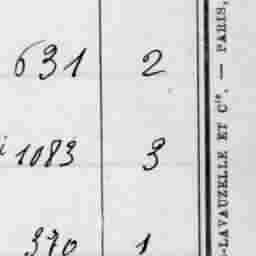 631 2
i 1083 3
370 1
-LAVAUZELLE ET Cie. — PARIS,